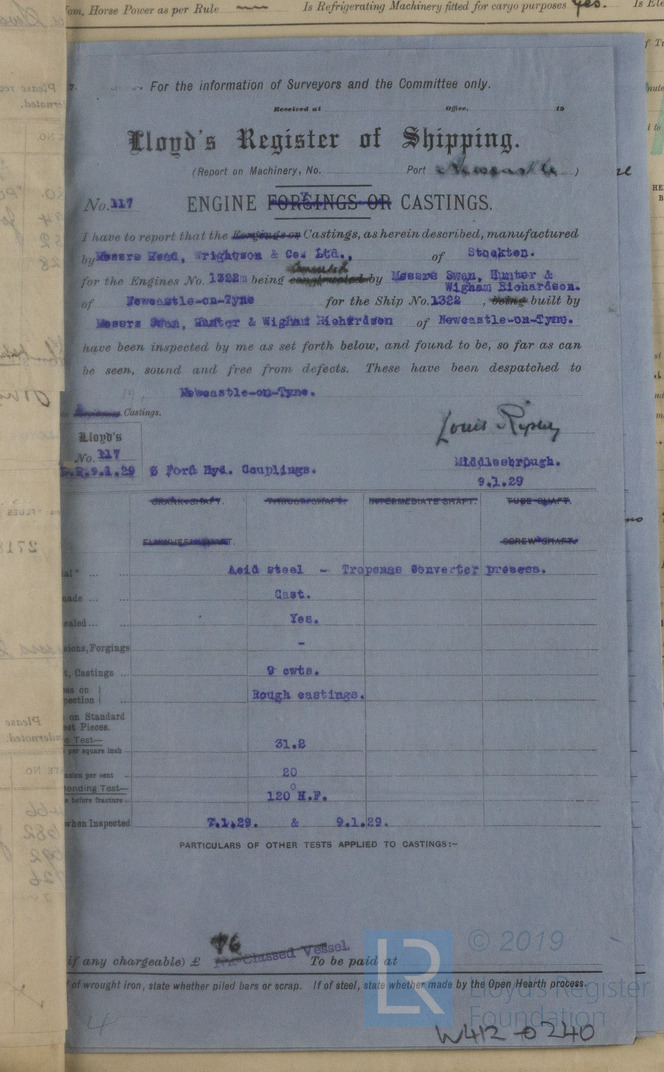 Nom. Horse Power as per Rule — Is Refrigerating Machinery fitted for cargo purposes Yes.
For the information of Surveyors and the Committee only.
Received at Office, 19
Lloyd's Register of Shipping.
(Report on Machinery, No. Port Newcastle )
No. 117 ENGINE FORGINGS OR CASTINGS.
I have to report that the Forgings or Castings, as herein described, manufactured
by Messrs Head, Wrightson & Co. Ltd., of Stockton.
for the Engines No. 1322m being constructed by Messrs Swan, Hunter &
Wigham Richardson.
of Newcastle-on-Tyne for the Ship No. 1322 , being built by
Messrs Swan, Hunter & Wigham Richardson of Newcastle-on-Tyne.
have been inspected by me as set forth below, and found to be, so far as can
be seen, sound and free from defects. These have been despatched to
Newcastle-on-Tyne.
Castings.
Louis Ripley
Lloyd's
No. 117
L.R. 9.1.29 Ford Hyd. Couplings.
Middlesbrough.
9.1.29
CRANK SHAFT. THRUST SHAFT. INTERMEDIATE SHAFT. TUBE SHAFT.
FLYWHEEL SHAFT. SCREW SHAFT.
Acid steel - Tropenas Converter process.
Cast.
Yes.
Forgings -
Castings ... 9 cwts.
Rough castings.
on Standard
Test Pieces.
Test—
per square inch 31.2
per cent 20
Bending Test—
before fracture 120° H.F.
when Inspected 7.1.29. & 9.1.29.
PARTICULARS OF OTHER TESTS APPLIED TO CASTINGS:—
if any chargeable) £ Classed Vessel. To be paid at
of wrought iron, state whether piled bars or scrap. If of steel, state whether made by the Open Hearth process.
© 2019
LR
Lloyd's Register
Foundation
W412-0240